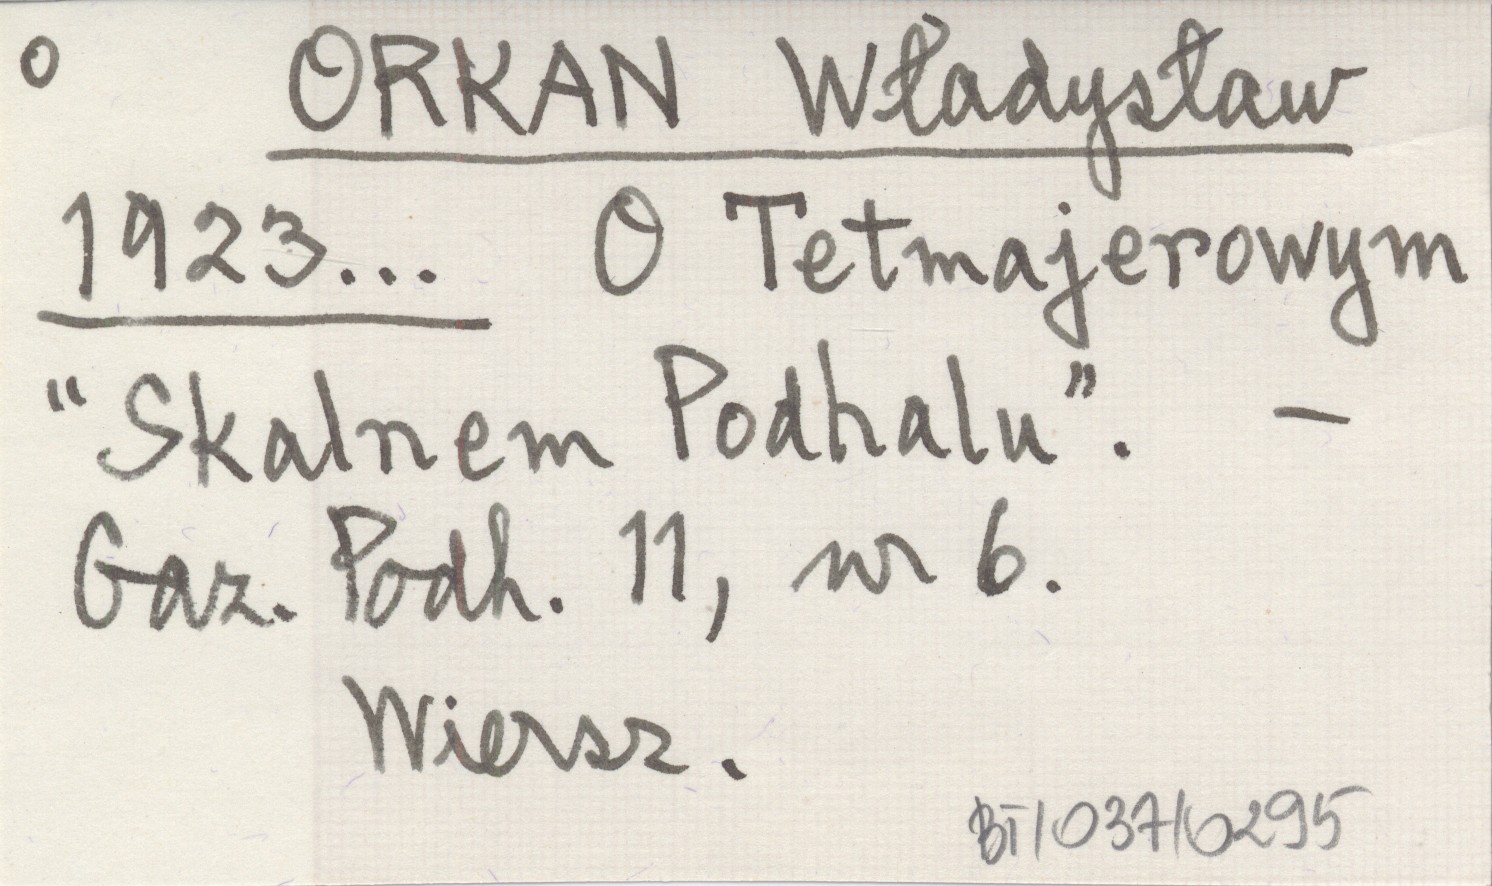 o ORKAN Władysław
1923... O Tetmajerowym
"Skalnem Podhalu". -
Gaz. Podh. 11, nr 6.
Wiersz.
BT/037/6295